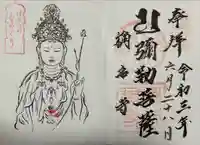 奉拝
令和三年
六月二十八日
彌勒菩薩
稱名寺